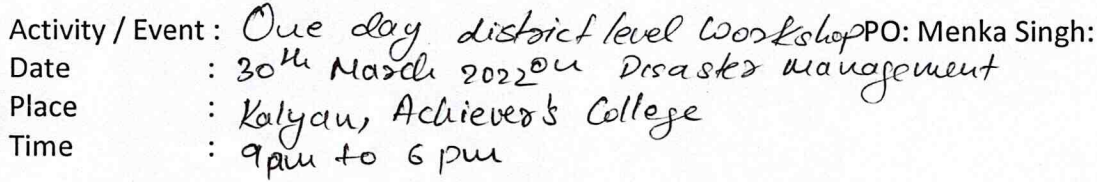 Activity / Event : One day district level Workshop PO: Menka Singh:
Date : 30th March 2022 on Disaster management
Place : Kalyan, Achiever's College
Time : 9 am to 6 pm